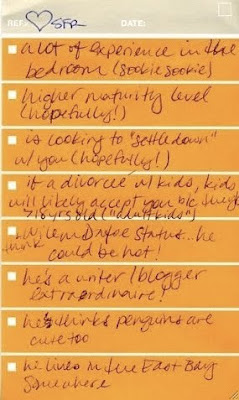 REF: ♡ SFR DATE:
a lot of experience in the
bedroom (sookie sookie)
higher maturity level
(hopefully!)
is looking to "settle down"
w/ you (hopefully!)
if a divorcée w/ kids, kids
will likely accept you b/c they're
718 yrs old ("adult kids")
think Willem Dafoe status...he
could be hot!
he's a writer/blogger
extraordinaire!
he thinks penguins are
cute too
he lives in the East Bay
somewhere